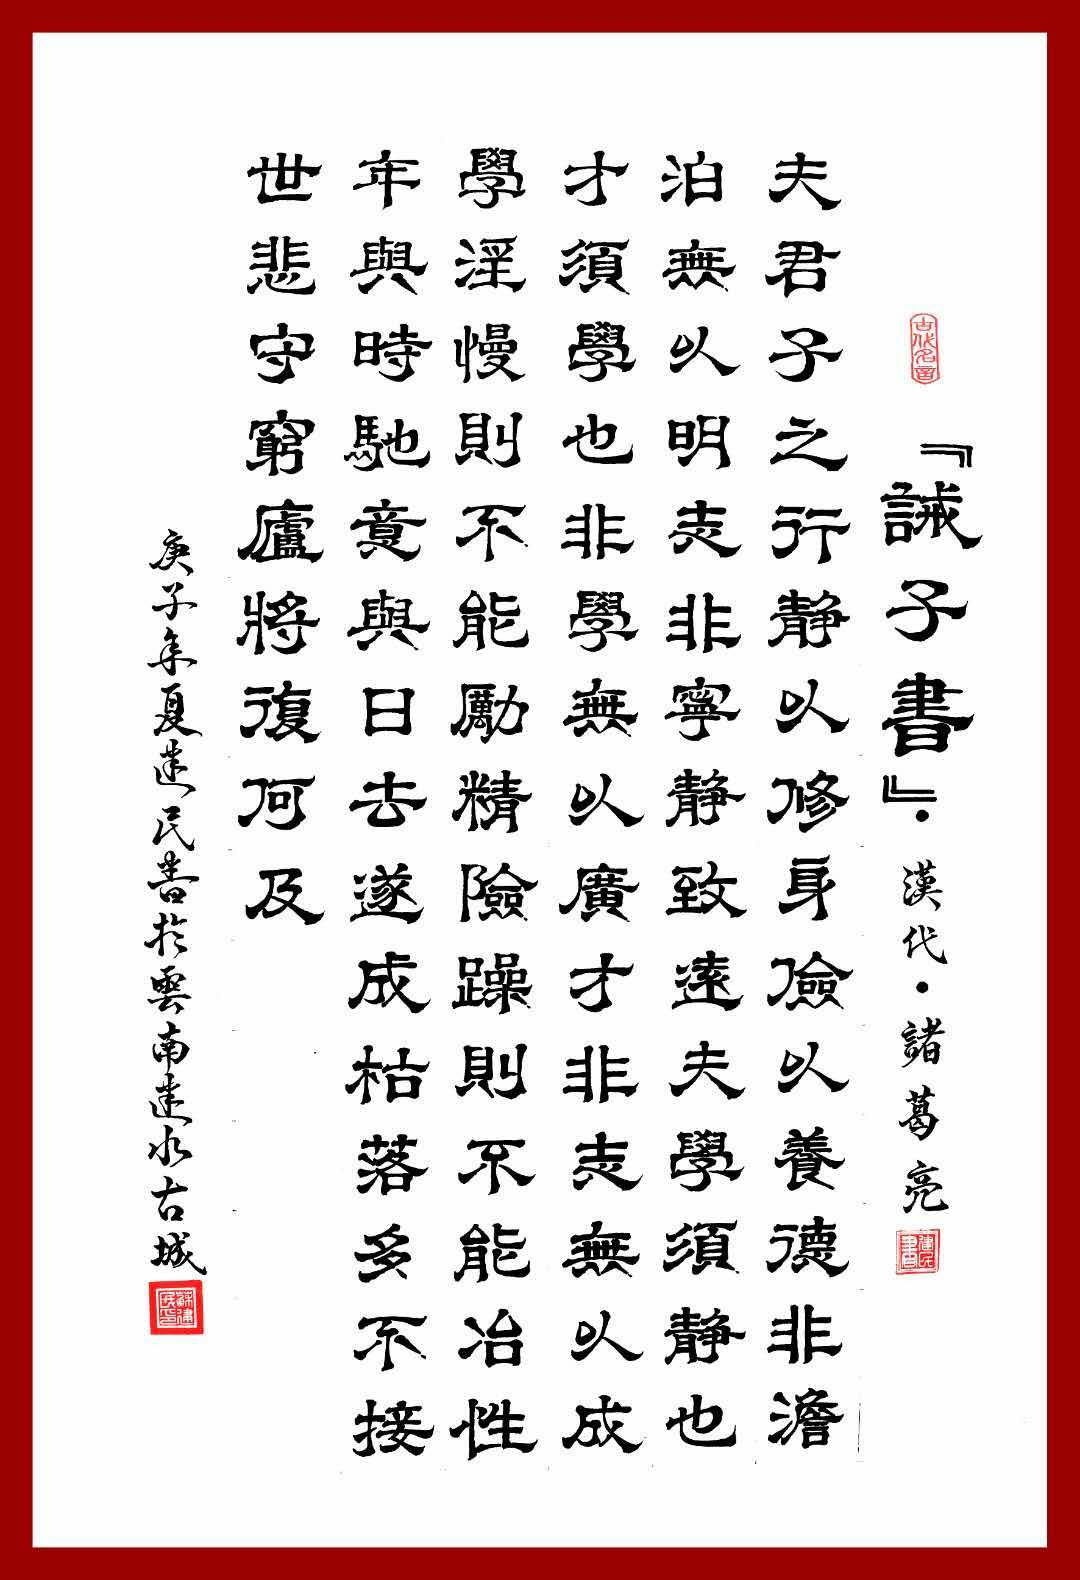 古代名言
『誡子書』·漢代·諸葛亮
建民書畫
夫君子之行静以修身儉以養德非澹
泊無以明志非寧静致遠夫學須静也
才須學也非學無以廣才非志無以成
學淫慢則不能勵精險躁則不能冶性
年與時馳意與日去遂成枯落多不接
世悲守窮廬將復何及
庚子年夏建民書於雲南建水古城
蘇建民印